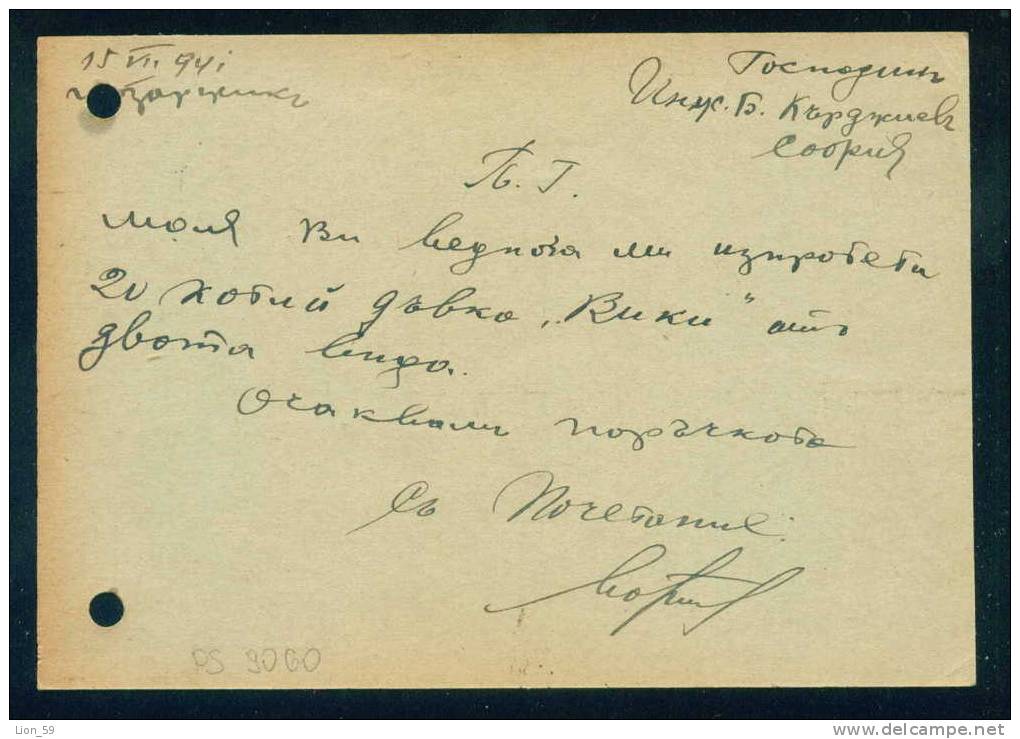 15 VII 941
Господинъ
Инж. Б. Кърджиевъ
София
П. Г.
моля Ви веднага ми изпратети
20 котий дъвка „Вики" отъ
двата вида.
Очаквамъ поръчката
Съ Почетание:
PS 9060
Lion_59
www.delcampe.net